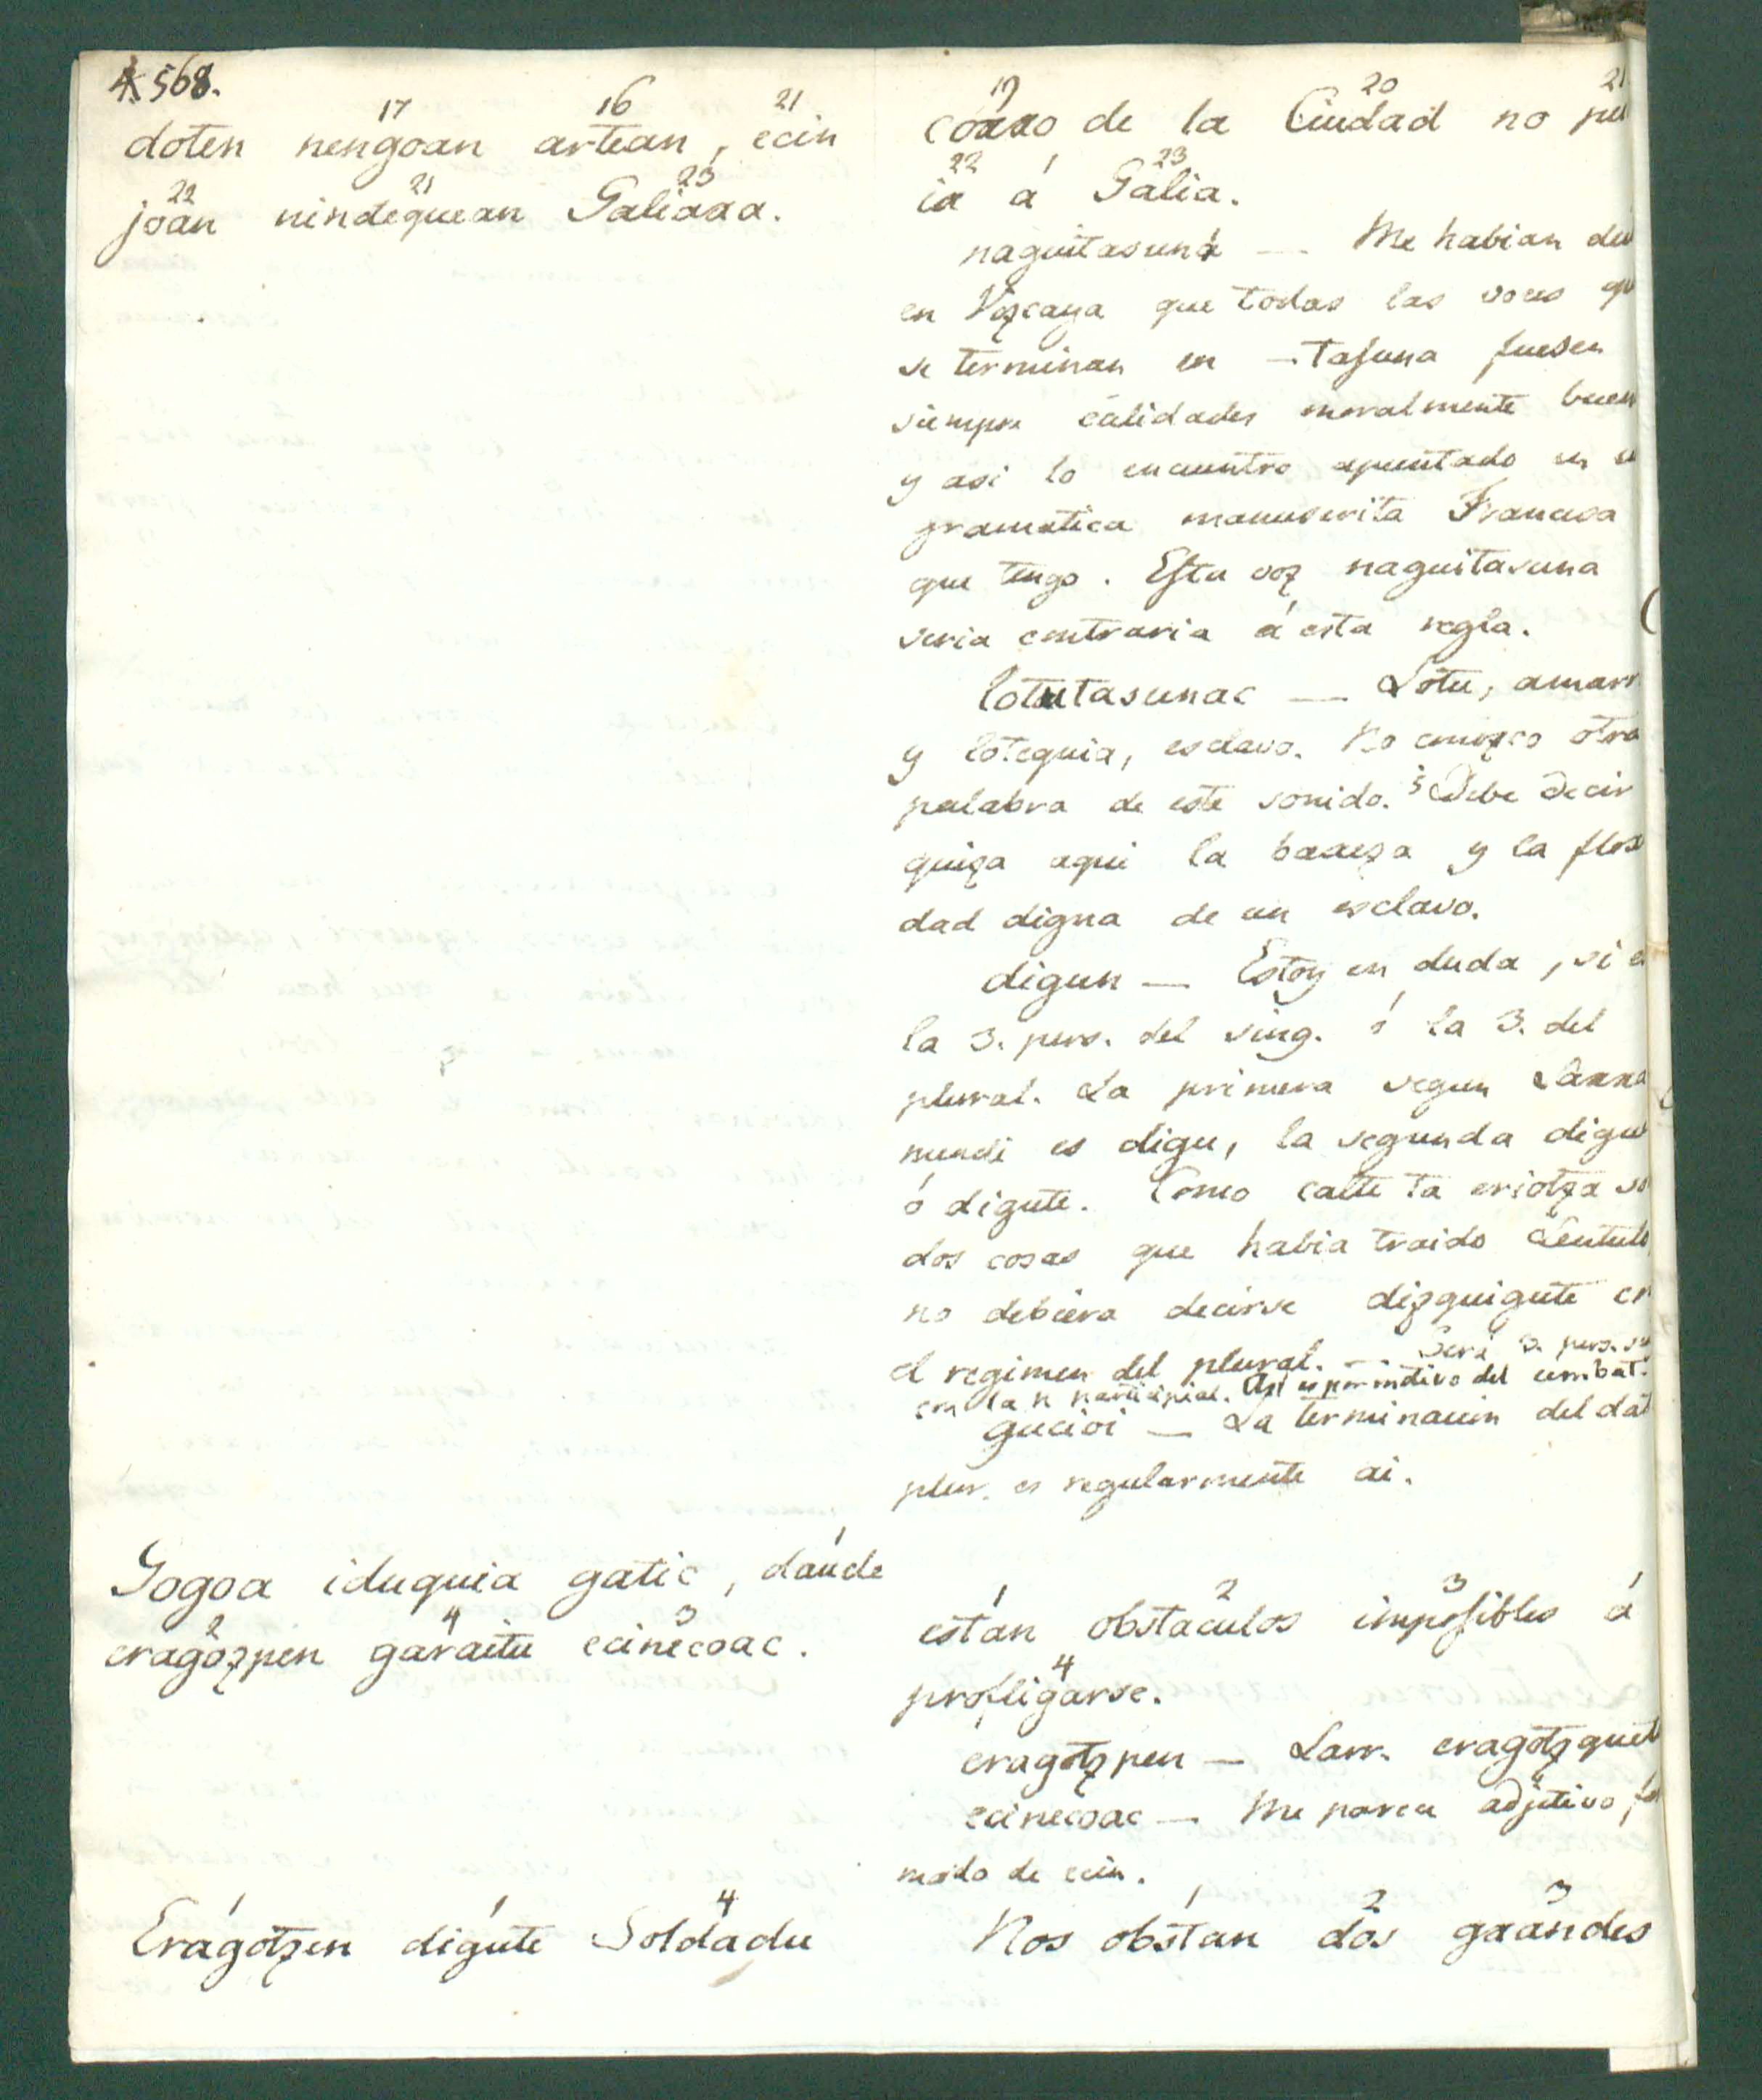 568.
17 16 21
doten nengoan artean, ecin
22 21 23
joan nindequean Galiara.
19 20 21
corro de la Ciudad no pu
22 1 23
ir á Galia.
naguitasuna — Me habian di
en Vizcaya que todas las voces qu
se terminan en —tasuna fuesen
siempre calidades moralmente buen
y asi lo encuentro apuntado en u
gramatica manuscrita Francesa
que tengo. Esta voz naguitasuna
seria contraria á esta regla.
lotutasunac — Lotu, amarr
y loteguia, esclavo. No conozco otra
palabra de este sonido. Debe decir
quiza aqui la baxeza y la flox
dad digna de un esclavo.
digun — Estoy en duda, si e
la 3. pers. del sing. ó la 3. del
plural. La primera segun Larra
mendi es digu, la segunda digue
ó digute. Como calte ta eriotza so
dos cosas que habia traido Lentulo
no debiera decirse dizguigute en
el regimen del plural. — Será 3. pers. si
con la n participial. Asi es
gucioi — La terminacion del dat
plur. es regularmente ai.
1
Gogoa iduquia gatic, daude
2 4 3
eragozpen garaitu ecinecoac.
1 2 3 1
están obstaculos imposibles á
4
profligarse.
eragotzpen — Larr. eragotzquet
ecinecoac — Me parece adjetivo, for
mado de ecin.
1 1 4
Eragotzen digute Soldadu
1 2 3
Nos obstan dos grandes